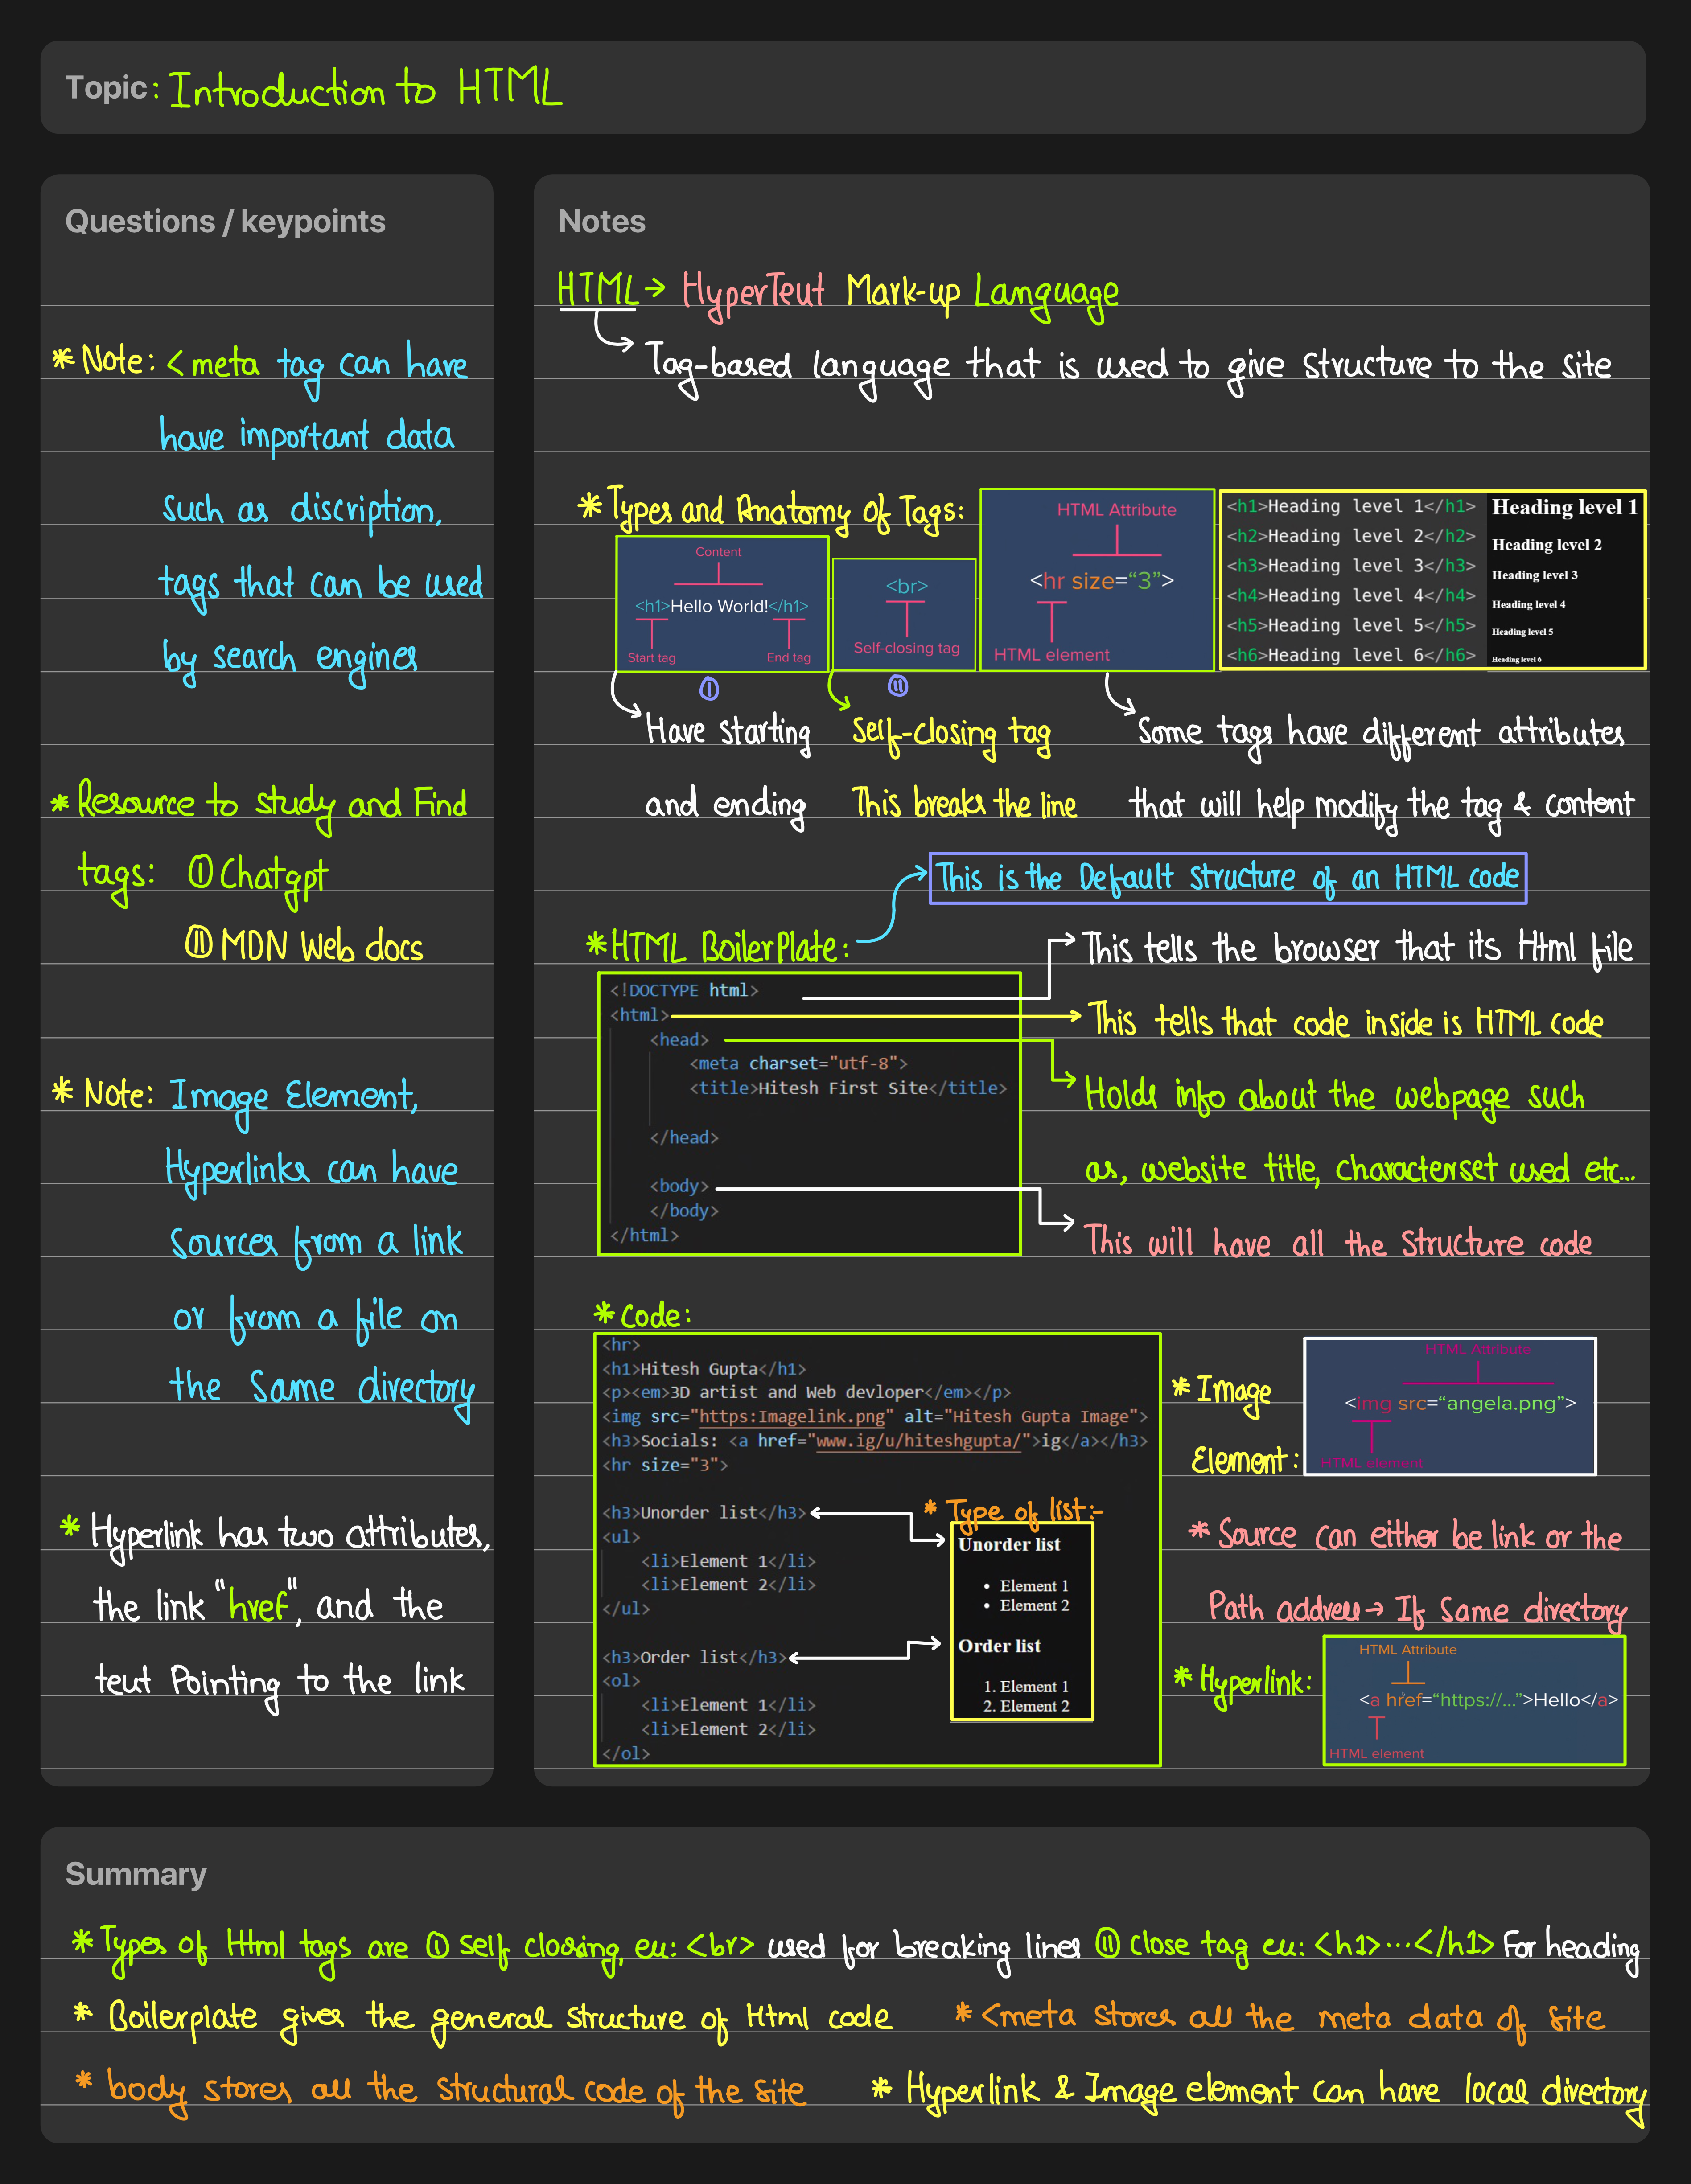 Topic: Introduction to HTML
Questions / keypoints
* Note: <meta tag can have
have important data
such as discription,
tags that can be used
by search engines
* Resource to study and Find
tags: ① Chatgpt
② MDN Web docs
* Note: Image Element,
Hyperlinks can have
sources from a link
or from a file on
the Same directory
* Hyperlink has two attributes,
the link "href", and the
text Pointing to the link
Notes
HTML → HyperText Mark-up Language
Tag-based language that is used to give structure to the site
* Types and Anatomy of Tags:
Content
<h1>Hello World!</h1>
Start tag End tag
①
<br>
Self-closing tag
②
HTML Attribute
<hr size=“3”>
HTML element
<h1>Heading level 1</h1>
<h2>Heading level 2</h2>
<h3>Heading level 3</h3>
<h4>Heading level 4</h4>
<h5>Heading level 5</h5>
<h6>Heading level 6</h6>
Heading level 1
Heading level 2
Heading level 3
Heading level 4
Heading level 5
Heading level 6
Have starting
and ending
Self-closing tag
This breaks the line
Some tags have different attributes
that will help modify the tag & content
This is the Default structure of an HTML code
* HTML BoilerPlate:
<!DOCTYPE html>
<html>
<head>
<meta charset="utf-8">
<title>Hitesh First Site</title>
</head>
<body>
</body>
</html>
This tells the browser that its Html file
This tells that code inside is HTML code
Holds info about the webpage such
as, website title, characterset used etc...
This will have all the Structure code
* Code:
<hr>
<h1>Hitesh Gupta</h1>
<p><em>3D artist and Web devloper</em></p>
<img src="https:Imagelink.png" alt="Hitesh Gupta Image">
<h3>Socials: <a href="www.ig/u/hiteshgupta/">ig</a></h3>
<hr size="3">
<h3>Unorder list</h3>
<ul>
<li>Element 1</li>
<li>Element 2</li>
</ul>
<h3>Order list</h3>
<ol>
<li>Element 1</li>
<li>Element 2</li>
</ol>
* Type of list:-
Unorder list
• Element 1
• Element 2
Order list
1. Element 1
2. Element 2
* Image
Element:
HTML Attribute
<img src=“angela.png”>
HTML element
* Source can either be link or the
Path address → If Same directory
* Hyperlink:
HTML Attribute
<a href=“https://...”>Hello</a>
HTML element
Summary
* Types of Html tags are ① Self closing, ex: <br> used for breaking lines ② Close tag ex: <h1>...</h1> For heading
* Boilerplate gives the general structure of Html code * <meta stores all the meta data of site
* body stores all the structural code of the site * Hyperlink & Image element can have local directory